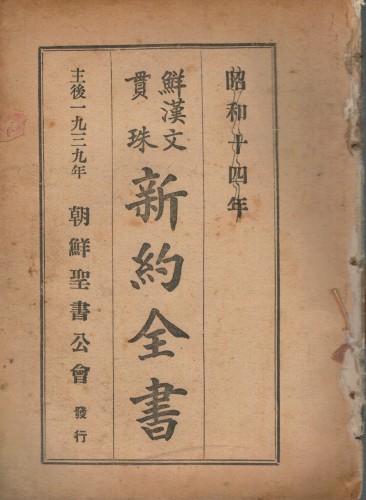 昭和十四年
鮮漢文
貫珠
新約全書
主後一九三九年
朝鮮聖書公會 發行